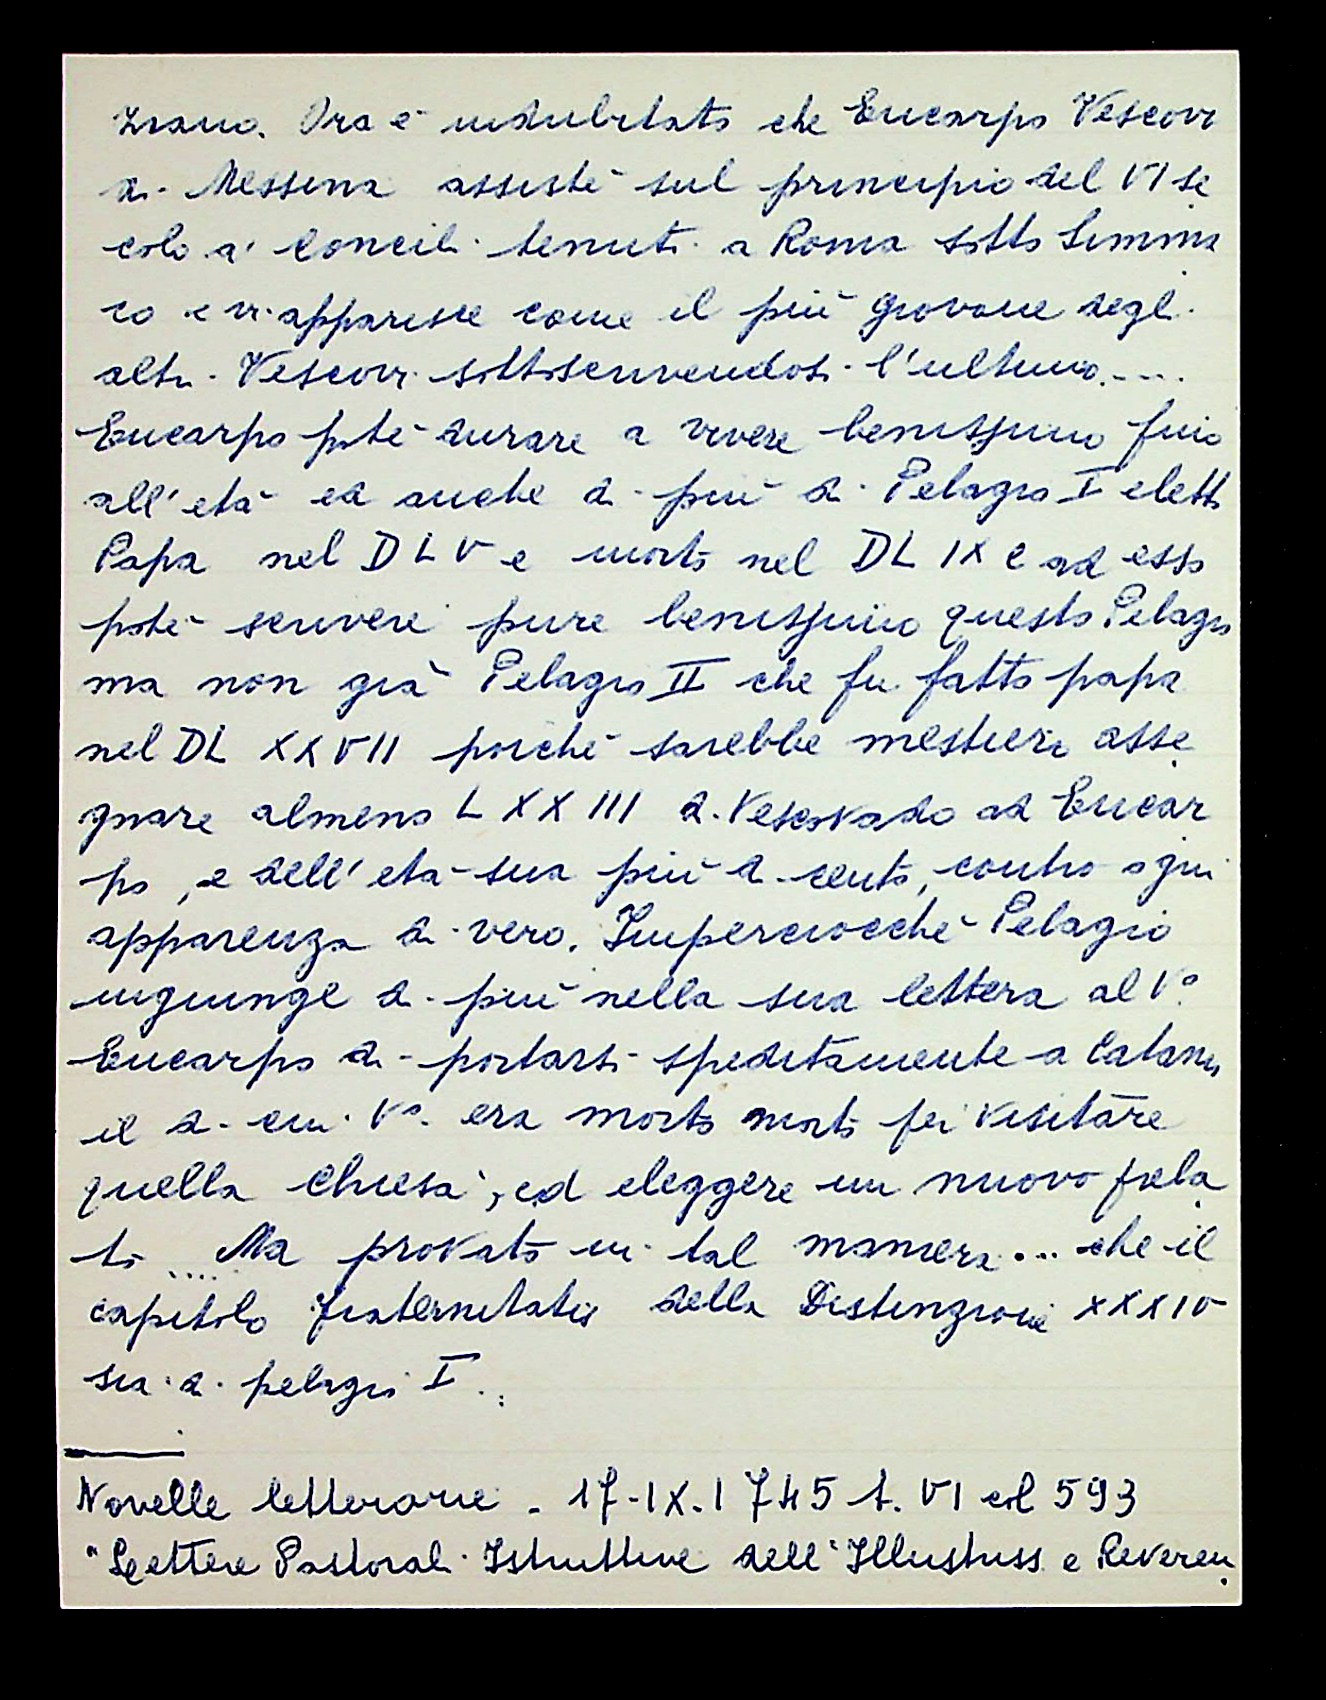 ziano. Ora è indubitato che Eucarpo Vescovo
di Messina assistè sul principio del VI se
colo a' Concili tenuti a Roma sotto Simma
co e vi apparisce come il più giovane degli
altri Vescovi sottoscrivendosi l'ultimo....
Eucarpo potè durare a vivere benissimo fino
all'età ed anche di più di Pelagio I eletto
Papa nel DLV e morto nel DLIX e ad esso
potè scrivere pure benissimo questo Pelagio
ma non già Pelagio II che fu fatto papa
nel DLXXVII poichè sarebbe mestiere asse
gnare almeno LXXIII di Vescovado ad Eucar
po, e dell'età sua più di cento, contro ogni
apparenza di vero. Imperciocchè Pelagio
ingiunge di più nella sua lettera al V°
Eucarpo di portarsi speditamente a Catania
il di cui V°. era morto morto per visitare
quella Chiesa, ed eleggere un nuovo prela
to .... Ma provato in tal maniera... che il
capitolo fraternitatis della Distinzione XXXIV
sia di pelagio I..
Novelle letterarie - 17-IX-1745 t. VI col 593
"Lettere Pastorali Istruttive dell'Illustriss e Reveren